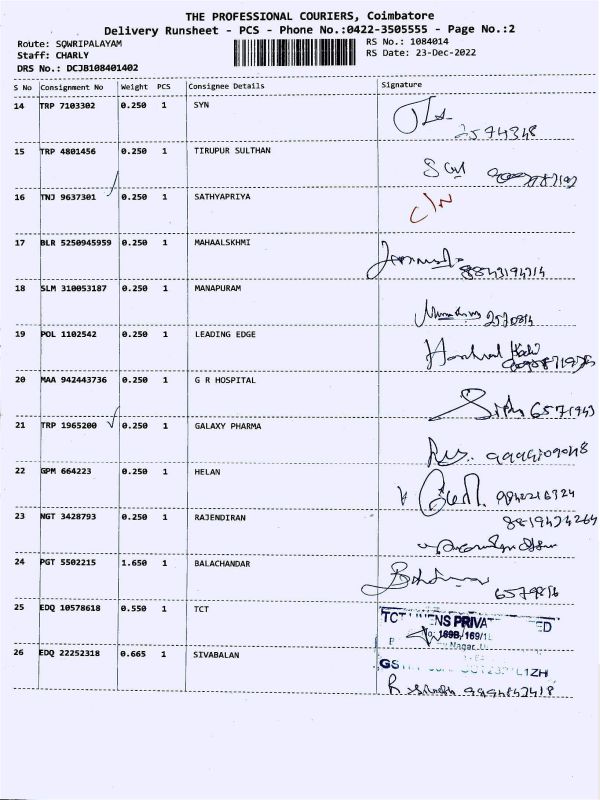 THE PROFESSIONAL COURIERS, Coimbatore
Delivery Runsheet - PCS - Phone No.:0422-3505555 - Page No.:2
Route: SQWRIPALAYAM RS No.: 1084014
Staff: CHARLY RS Date: 23-Dec-2022
DRS No.: DCJB108401402
S No Consignment No Weight PCS Consignee Details Signature
14 TRP 7103302 0.250 1 SYN
2574348
15 TRP 4801456 0.250 1 TIRUPUR SULTHAN
16 TNJ 9637301 0.250 1 SATHYAPRIYA C/N
17 BLR 5250945959 0.250 1 MAHAALSKHMI
18 SLM 310053187 0.250 1 MANAPURAM
19 POL 1102542 0.250 1 LEADING EDGE
20 MAA 942443736 0.250 1 G R HOSPITAL
6571943
21 TRP 1965200 0.250 1 GALAXY PHARMA
22 GPM 664223 0.250 1 HELAN
23 NGT 3428793 0.250 1 RAJENDIRAN
24 PGT 5502215 1.650 1 BALACHANDAR
25 EDQ 10578618 0.550 1 TCT
TCT
169B/169/1
Nagar
26 EDQ 22252318 0.665 1 SIVABALAN